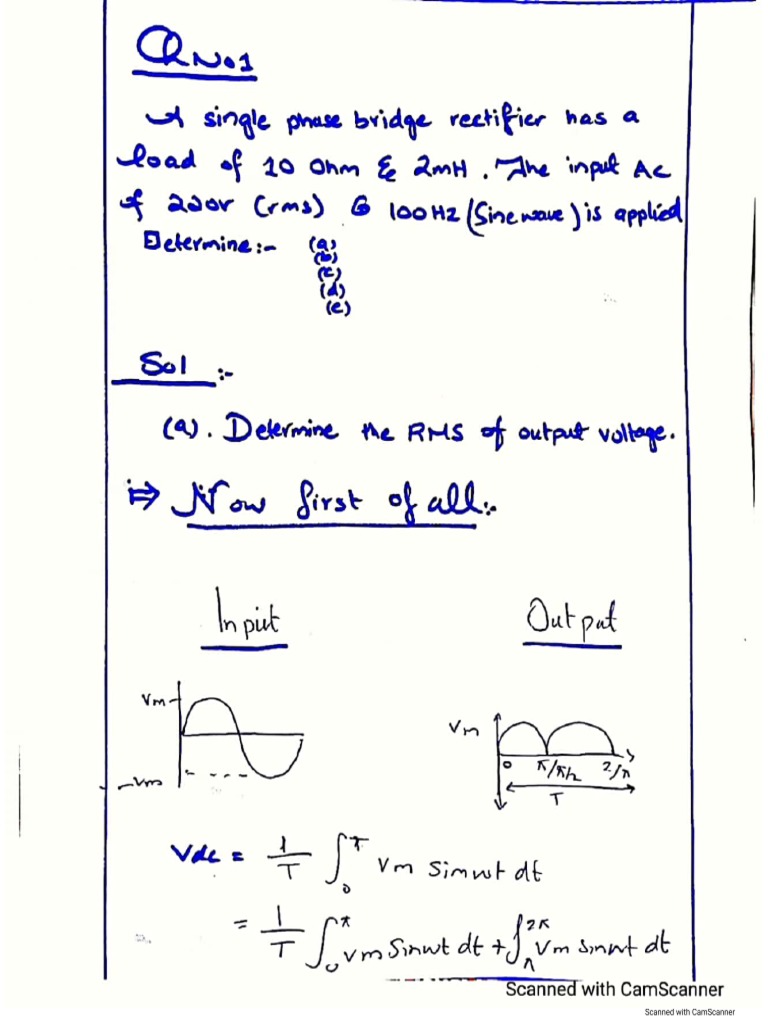 QNo1
A single phase bridge rectifier has a
load of 10 Ohm & 2mH. The input AC
of 220v (rms) @ 100Hz (Sine wave) is applied
Determine:- (a)
(b)
(c)
(d)
(e)
Sol :-
(a). Determine the RMS of output voltage.
⇒ Now first of all:-
Input
Output
Vm
-Vm
Vm
0 π/π/2 2/π
T
Vdc = 1/T ∫₀ᵀ Vm Sinwt dt
= 1/T ∫₀^π Vm Sinwt dt + ∫π^2π Vm Sinwt dt
Scanned with CamScanner
Scanned with CamScanner